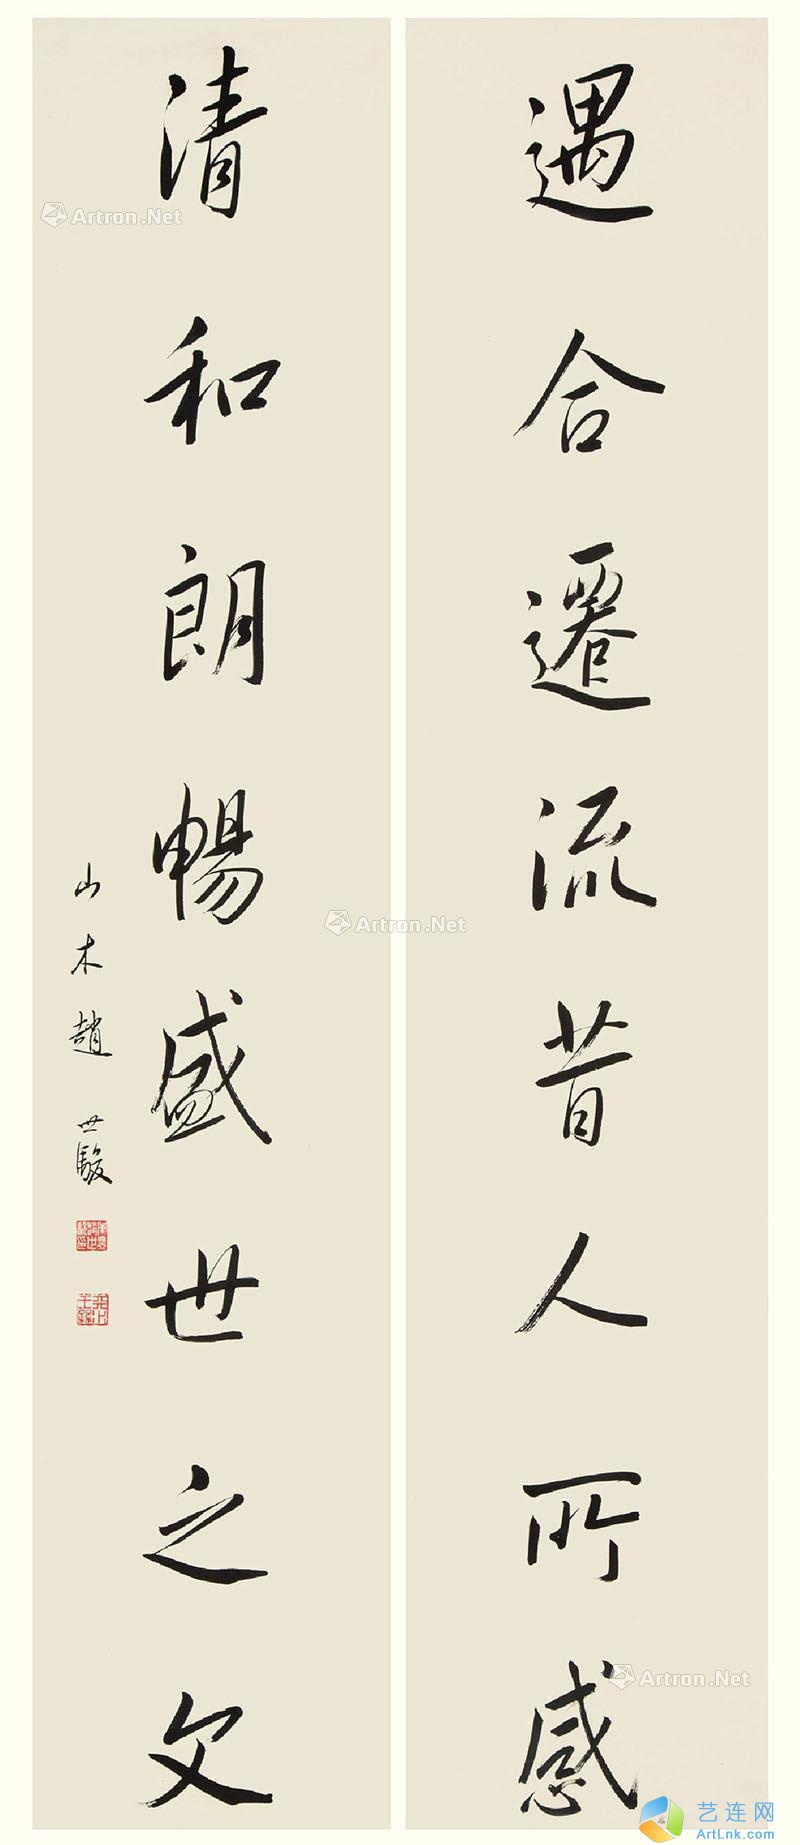 遇合遷流昔人所感
清和朗暢盛世之文
山木趙世駿
Artron.Net
Artron.Net
Artron.Net
艺连网
ArtLnk.com